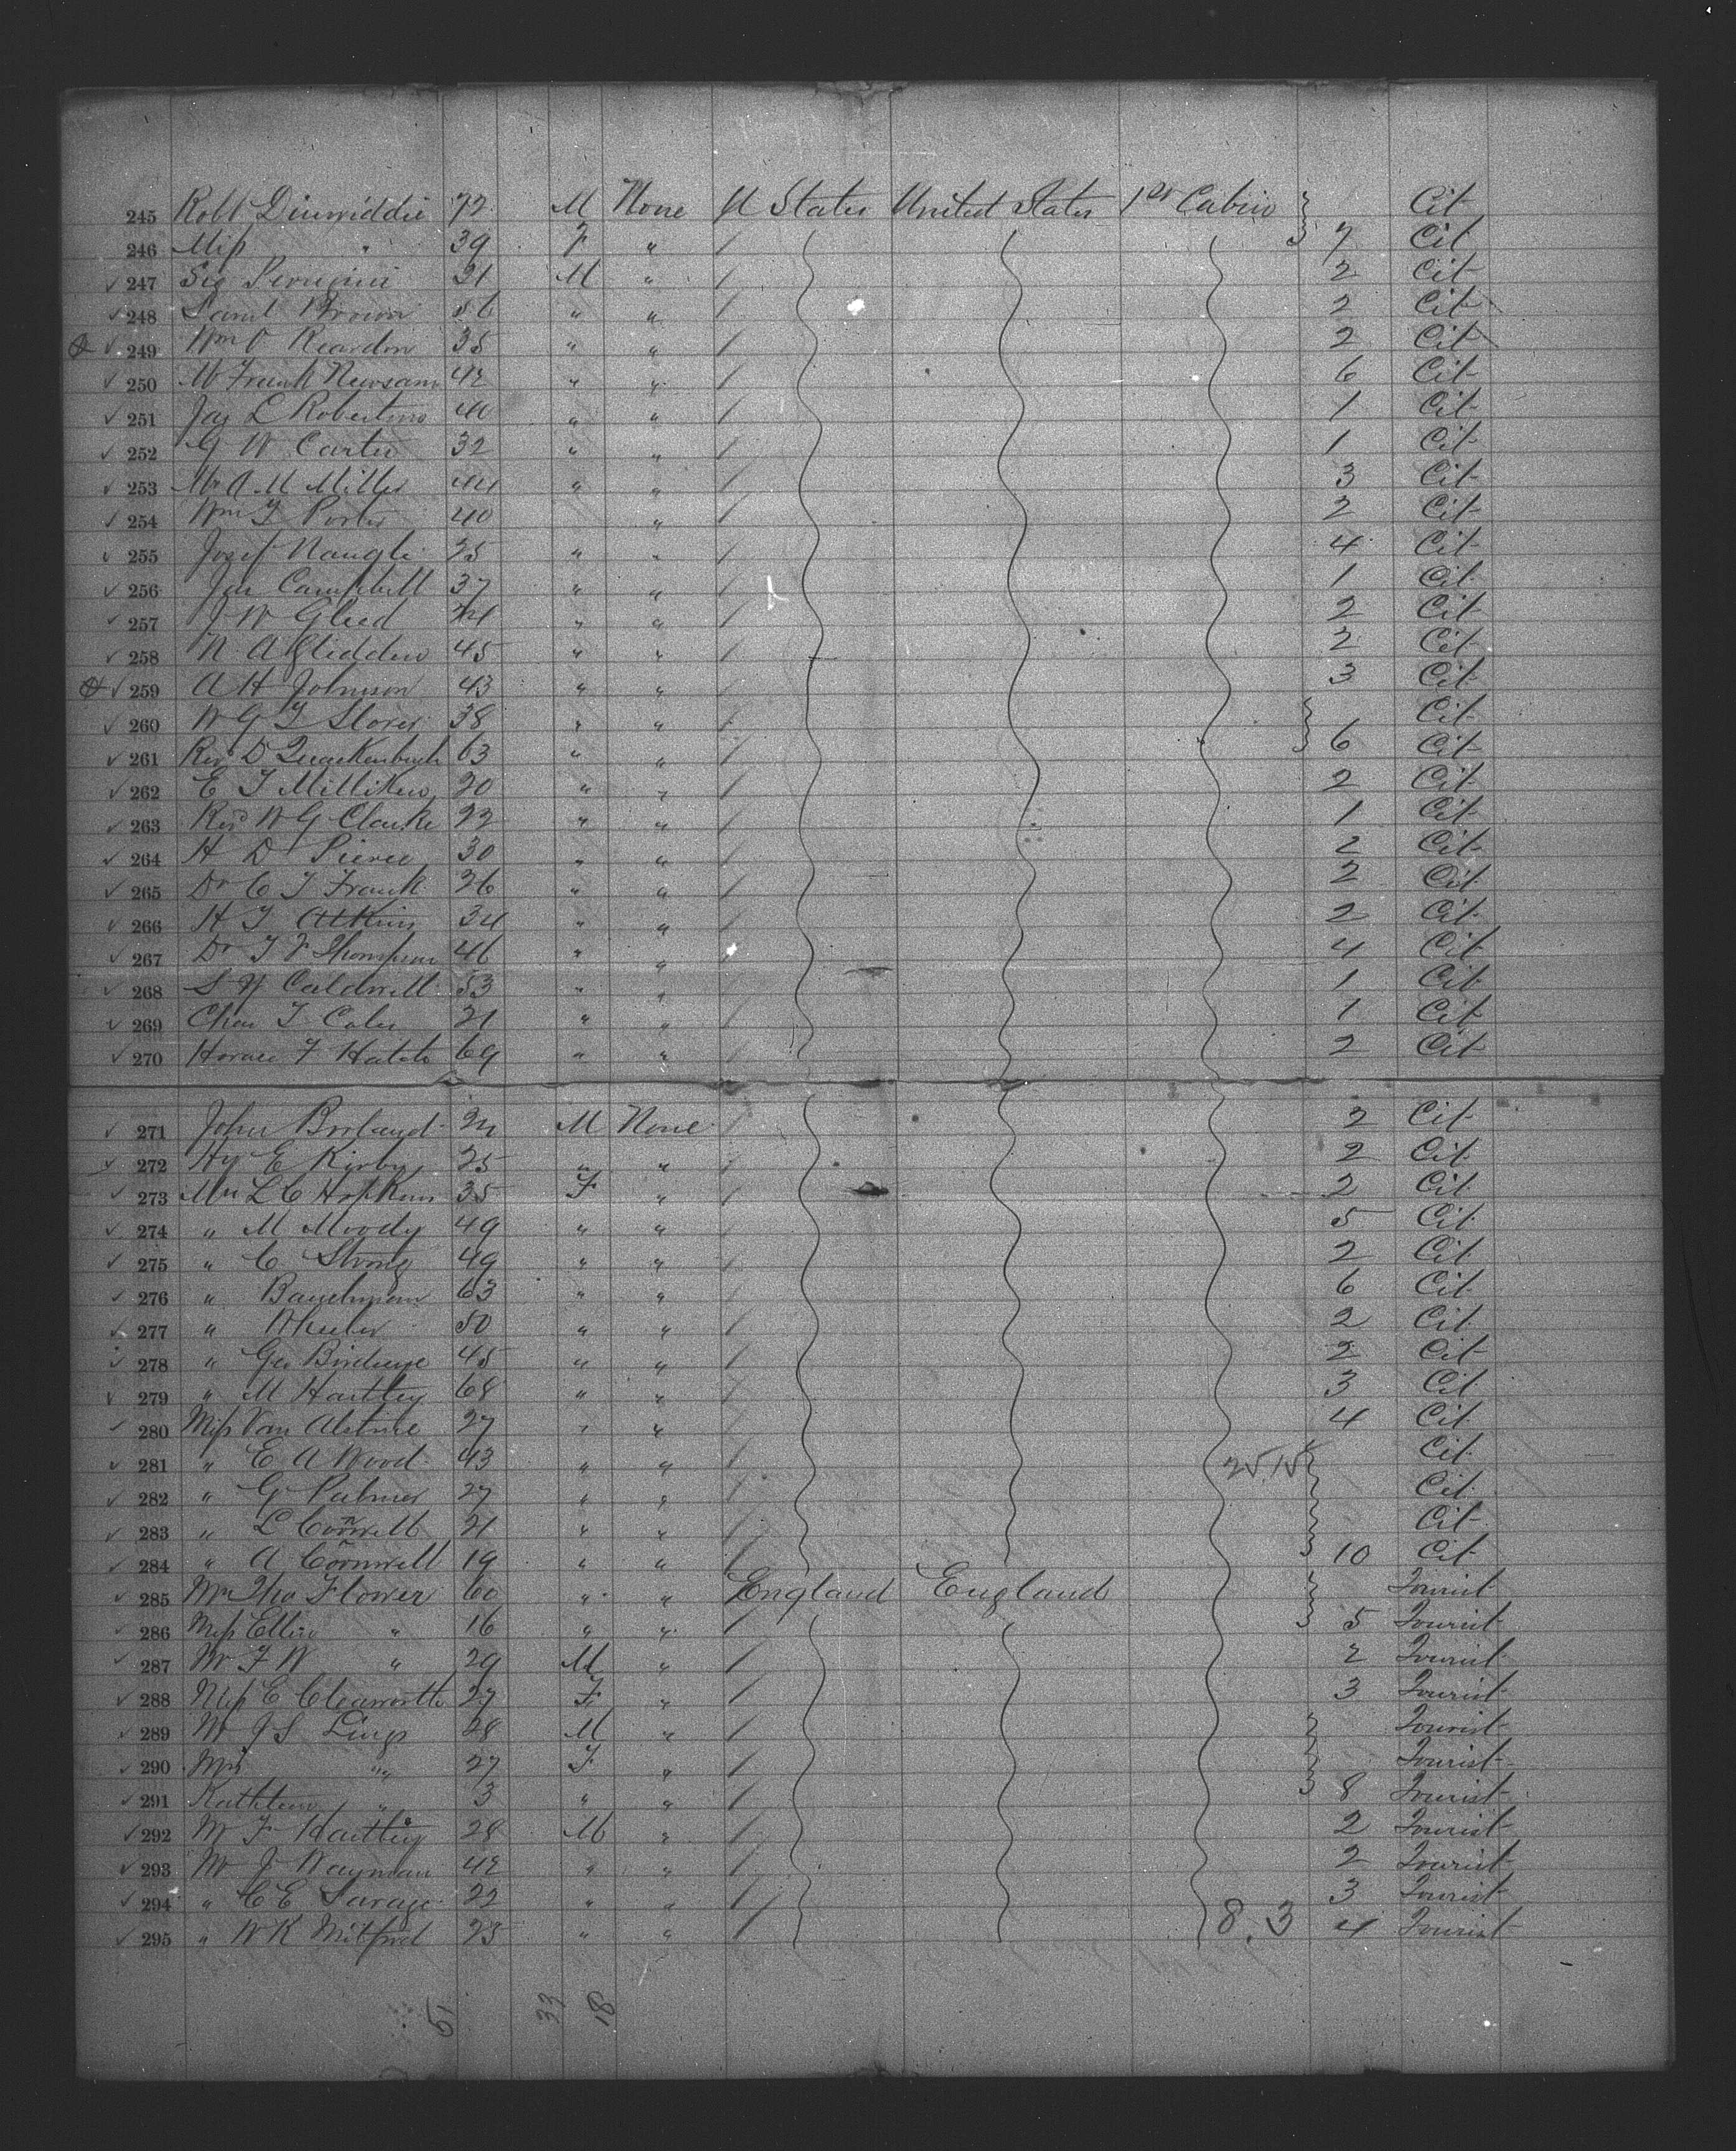 245 Robt Dinwiddie 72 M None U States United States 1st Cabin Cit
246 Miss " 39 F " 7 Cit
247 Sig Perugini 31 M " 2 Cit
248 Saml Brown 56 " " 2 Cit
249 Wm O Reardon 35 " " 2 Cit
250 W Frank Newsam 42 " " 6 Cit
251 Jas L Robertson 40 " " 1 Cit
252 G W Carter 32 " " 1 Cit
253 Mr A M Miller 44 " " 3 Cit
254 Wm T Porter 40 " 2 Cit
255 Josef Naugle 25 " " 4 Cit
256 Campbell 37 " " 1 Cit
257 J W Gleed " " 2 Cit
258 N A Glidden 45 " " 2 Cit
259 A H Johnson 43 " " 3 Cit
260 W G T Slover 38 " " Cit
261 Rev D Quackenbush 63 " " 6 Cit
262 E T Milliken 20 " " 2 Cit
263 Revd W G Clarke 22 " " 1 Cit
264 H D Pierce 30 " " 2 Cit
265 Dr C T Frank 26 " " 2 Cit
266 H T Atkins 34 " " 2 Cit
267 Dr T F Thompson 46 " " 4 Cit
268 S Y Caldwell 53 " " 1 Cit
269 Chas T Coles 21 " " 1 Cit
270 Horace F Hatch 69 " " 2 Cit
271 John Borland M None 2 Cit
272 Hy E Kirby 25 " " 2 Cit
273 Mrs L C Hopkins 35 F " 2 Cit
274 " M Moody 49 " " 5 Cit
275 " C Strong 49 " " 2 Cit
276 " Baughman 63 " " 6 Cit
277 " Wheeler 50 " " 2 Cit
278 " Geo Birdseye 45 " " 2 Cit
279 " M Hartley 68 " " 3 Cit
280 Miss Van Alstine 27 " " 4 Cit
281 " E A Wood 43 " " Cit
282 " G Palmer 27 " " Cit
283 " L Cornwell 21 " " Cit
284 " A Cornwell 19 " " 10 Cit
285 Mrs Tho Flower 60 " " England England Tourist
286 Miss Ellen " 16 " " 5 Tourist
287 Mr F W " 29 M " 2 Tourist
288 Miss E Cleaworth 27 F " 3 Tourist
289 Mr J S Lings 28 M " Tourist
290 Mrs " 27 F " Tourist
291 Kathleen " 3 " " 8 Tourist
292 Mr F Hartley 28 M " 2 Tourist
293 Mr J Wayman 42 " " 2 Tourist
294 " C E Savage 22 " " 3 Tourist
295 " W K Mitford 23 " " 8.3 4 Tourist
51 33 18